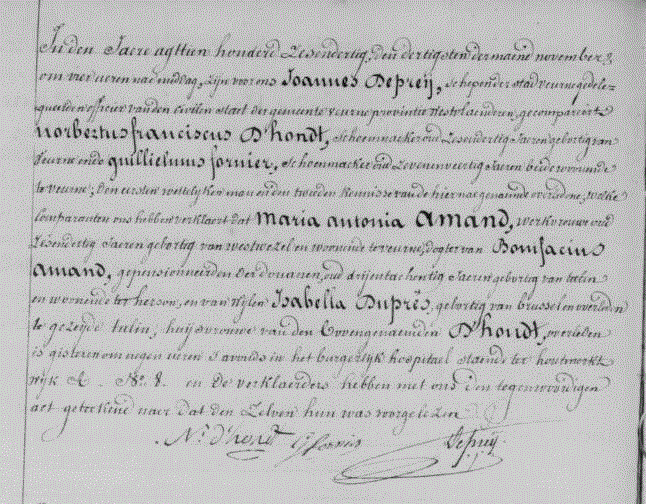 In den Jaere agttien honderd Zesendertig, den dertigsten der maend november,
om vier ueren nadmiddag, zijn voor ons Joannes Depreij, schepen der stad veurne gedele-
queerden officier van den civilen staet der gemeente veurne provintie Westvlaendren, gecompareert
norbertus franciscus D'hondt, schoenmacker oud Zesendertig Jaeren gebortig van
veurne ende guillielmus fornier, schoenmacker oud Zevenenveertig Jaeren beide woonende
te veurne; den eersten wettelyken man en den tweeden kennisse van de hiernaergenaemde overledene, welke
Comparanten ons hebben verklaert dat maria antonia Amand, werkvrouwe oud
Zesendertig Jaeren gebortig van westwezel en woonende te veurne, dogter van Bonifacius
Amand, gepensionneerden der douanen, oud drijentachentig Jaeren gebortig van
en woonende ter, en van wijlen Isabella Duprés, gebortig van brussel en overleden
te gezeijde, huijsvrouwe van den bovengenaemden D'hondt, overleden
is gisteren om negen ueren s'avonds in het burgerlyk hospitael staende ter houtmerkt
wijk A. No. 8. en de verklaerders hebben met ons den tegenwoordigen
act geteekend naer dat den Zelven hun was voorgelezen
Ns. d'hondt G fornier Depreij